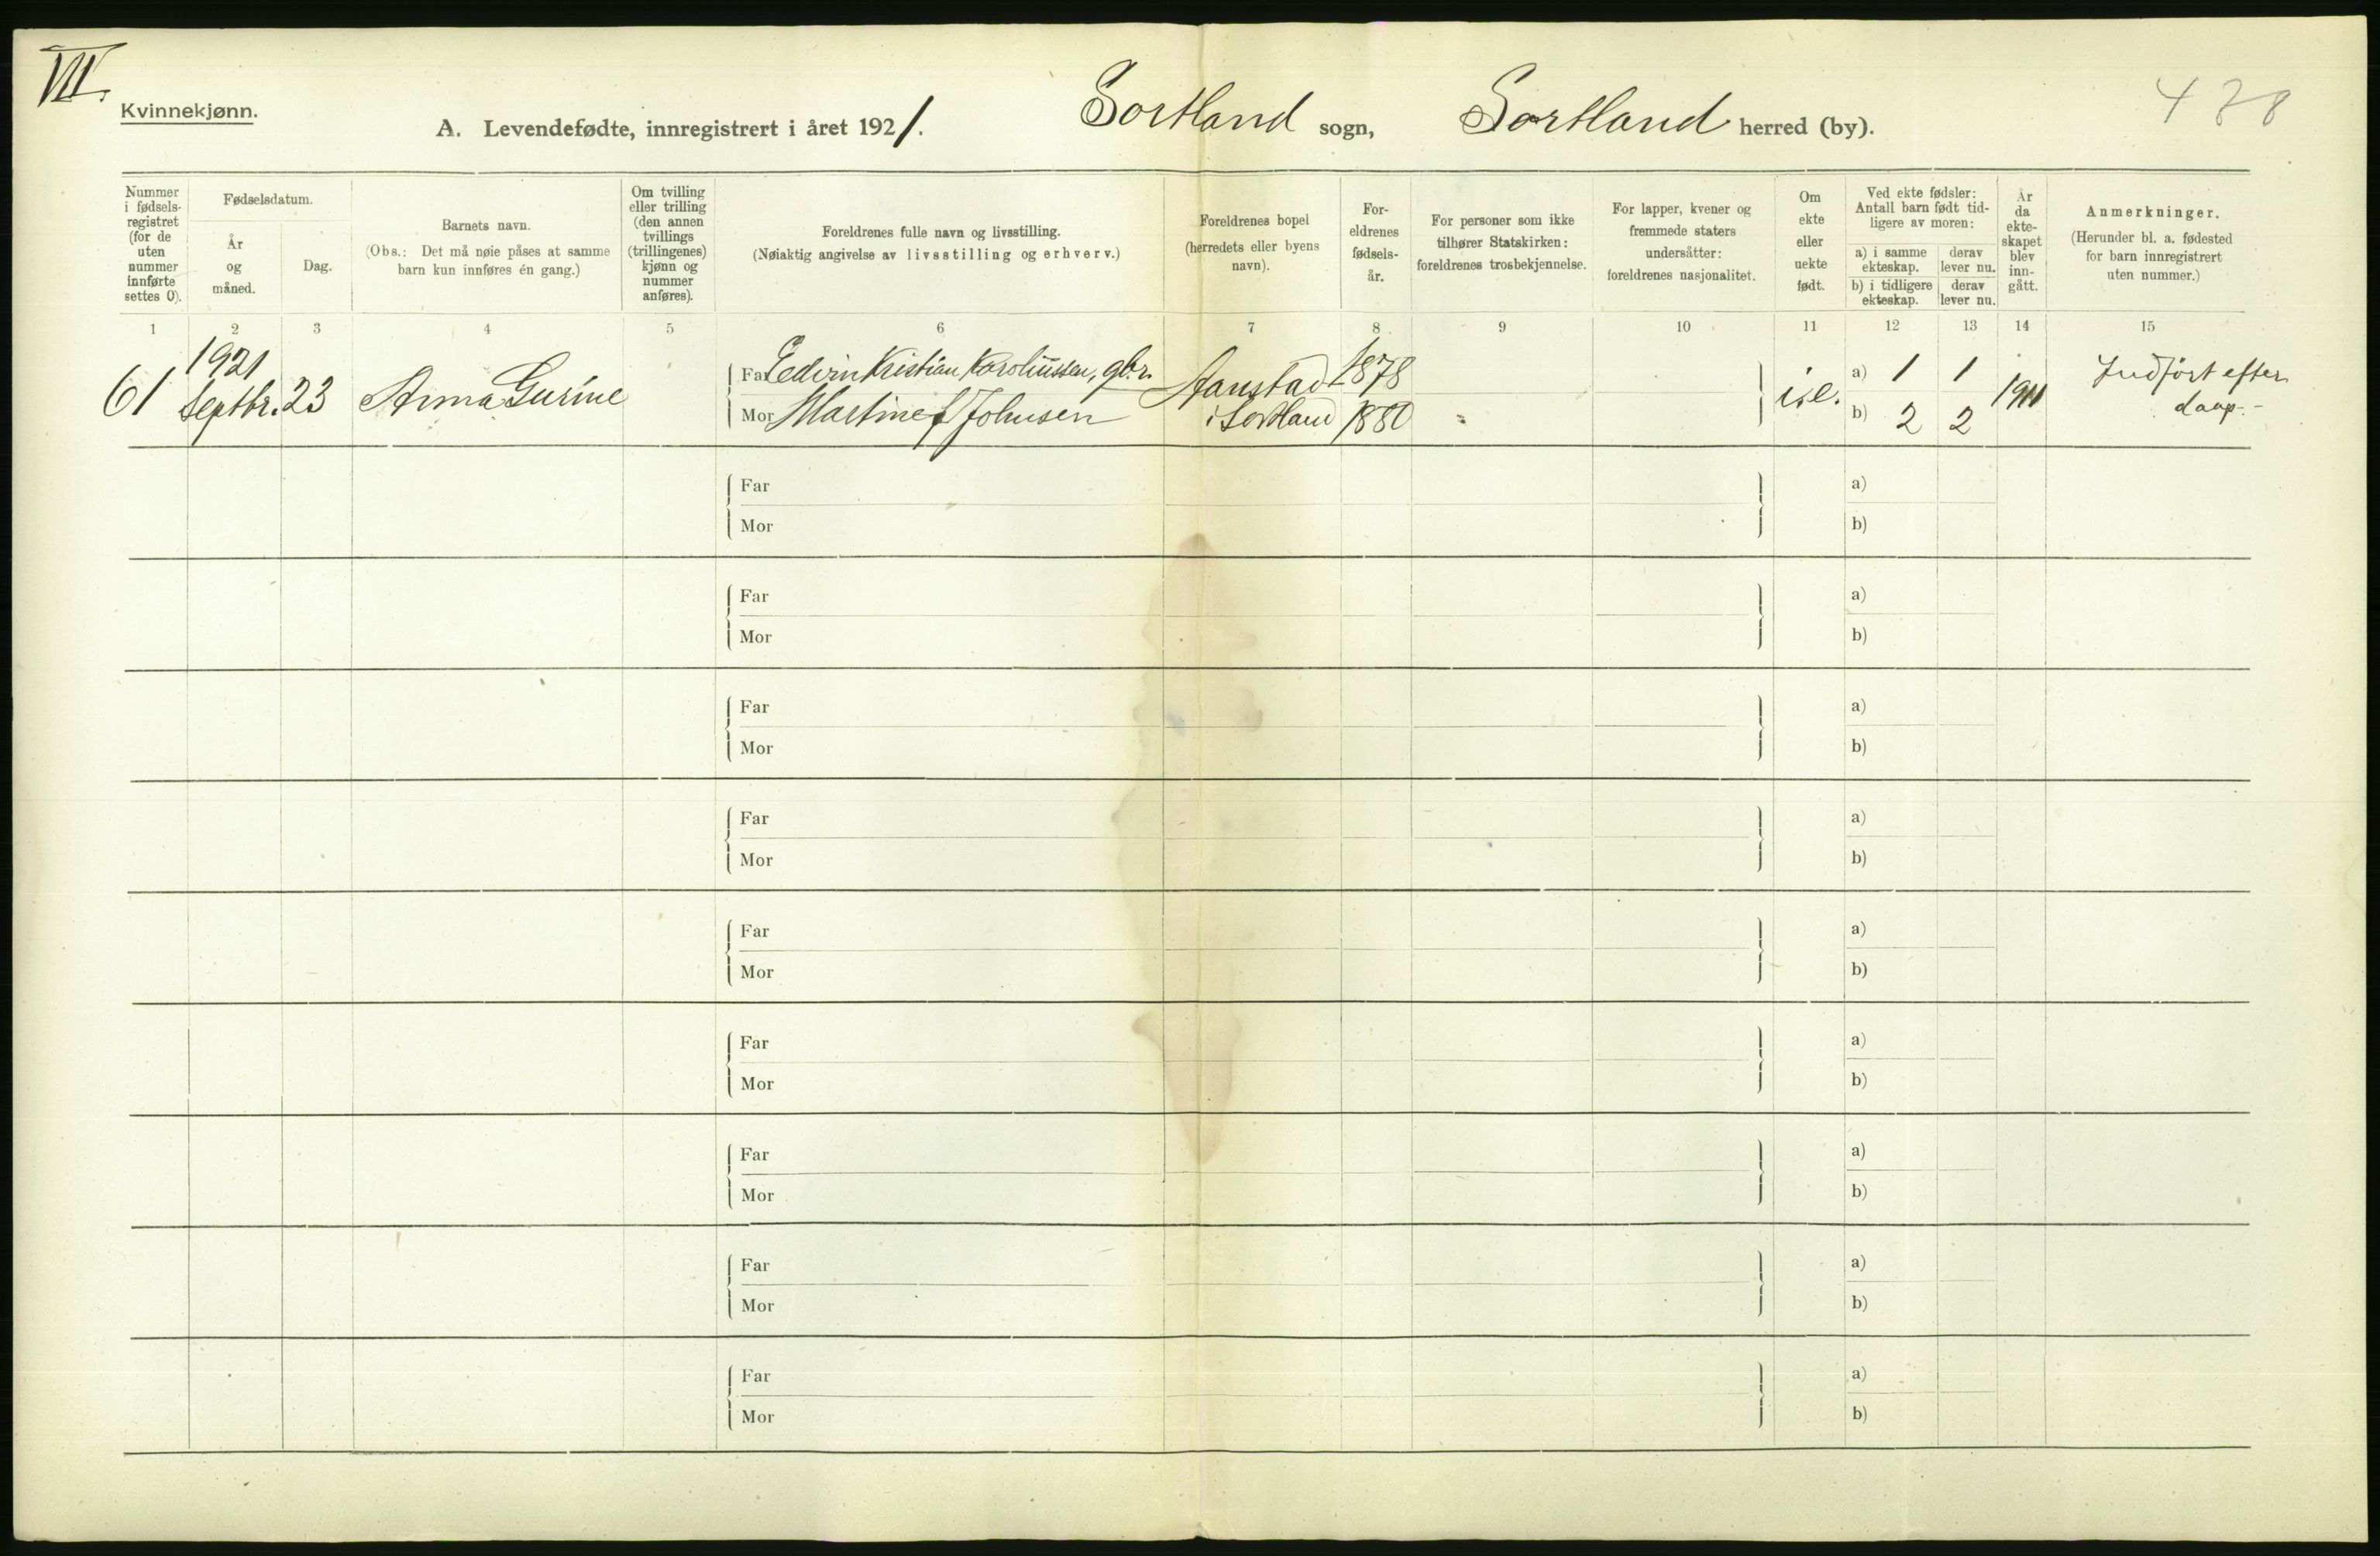 VII.
Kvinnekjønn.
A. Levendefødte, innregistrert i året 1921. Sortland sogn, Sortland herred (by).
Nummer i fødselsregistret (for de uten nummer innførte settes 0).
Fødselsdatum.
År og måned.
Dag.
Barnets navn.
(Obs.: Det må nøie påses at samme barn kun innføres én gang.)
Om tvilling eller trilling (den annen tvillings (trillingenes) kjønn og nummer anføres).
Foreldrenes fulle navn og livsstilling.
(Nøiaktig angivelse av livsstilling og erhverv.)
Foreldrenes bopel (herredets eller byens navn).
Foreldrenes fødselsår.
For personer som ikke tilhører Statskirken: foreldrenes trosbekjennelse.
For lapper, kvener og fremmede staters undersåtter: foreldrenes nasjonalitet.
Om ekte eller uekte født.
Ved ekte fødsler: Antall barn født tidligere av moren:
a) i samme ekteskap.
derav lever nu.
b) i tidligere ekteskap.
derav lever nu.
År da ekteskapet blev inngått.
Anmerkninger.
(Herunder bl. a. fødested for barn innregistrert uten nummer.)
1 2 3 4 5 6 7 8 9 10 11 12 13 14 15
61 1921 Septbr. 23 Anna Gurine
Far Edvin Kristian Karoliussen, gbr. 1878
Mor Martine Johnsen 1880
i Sortland
a) 1 1
b) 2 2
1911
Indført efter
daap.-
Far a)
Mor b)
Far a)
Mor b)
Far a)
Mor b)
Far a)
Mor b)
Far a)
Mor b)
Far a)
Mor b)
Far a)
Mor b)
Far a)
Mor b)
Far a)
Mor b)